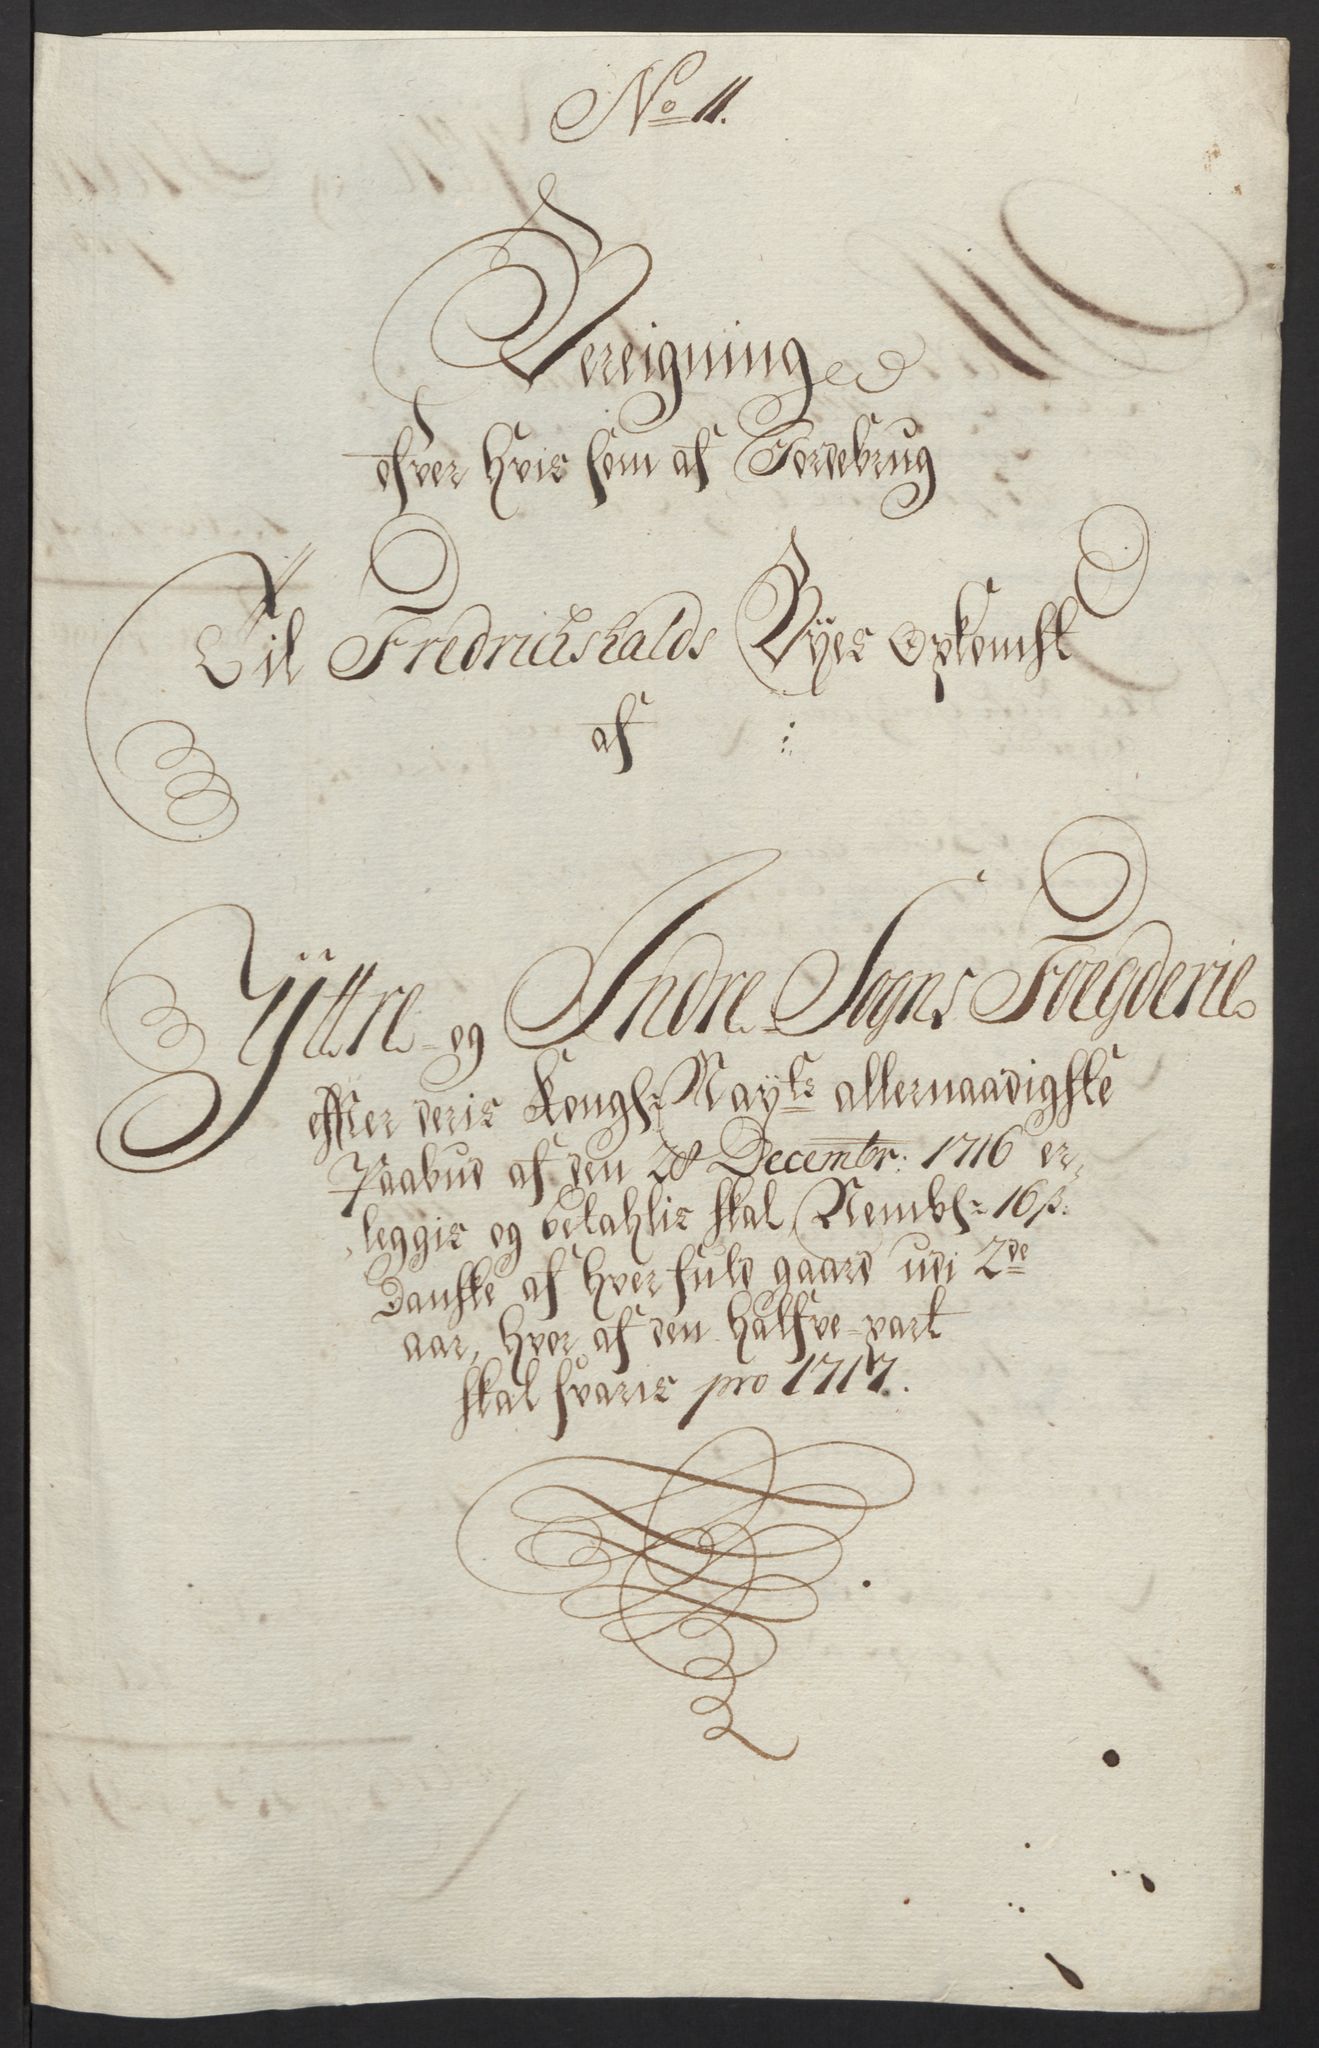 No 11.
Bereigning
ofver hvis som af Jordebrug
Til Fredrichshalds Byes Opkomst
af
Yttre og Indre Sogns Foegderie
efter deris Kongl: Mayts allernaadigste
Paabud af den 28 Decembr: 1716 er
leggis og betahlis skal, Nembl: 16 ß:
Danske af hver fuld gaard udi 2de
aar, hvor af den halfve part
skal svaris pro 1717.